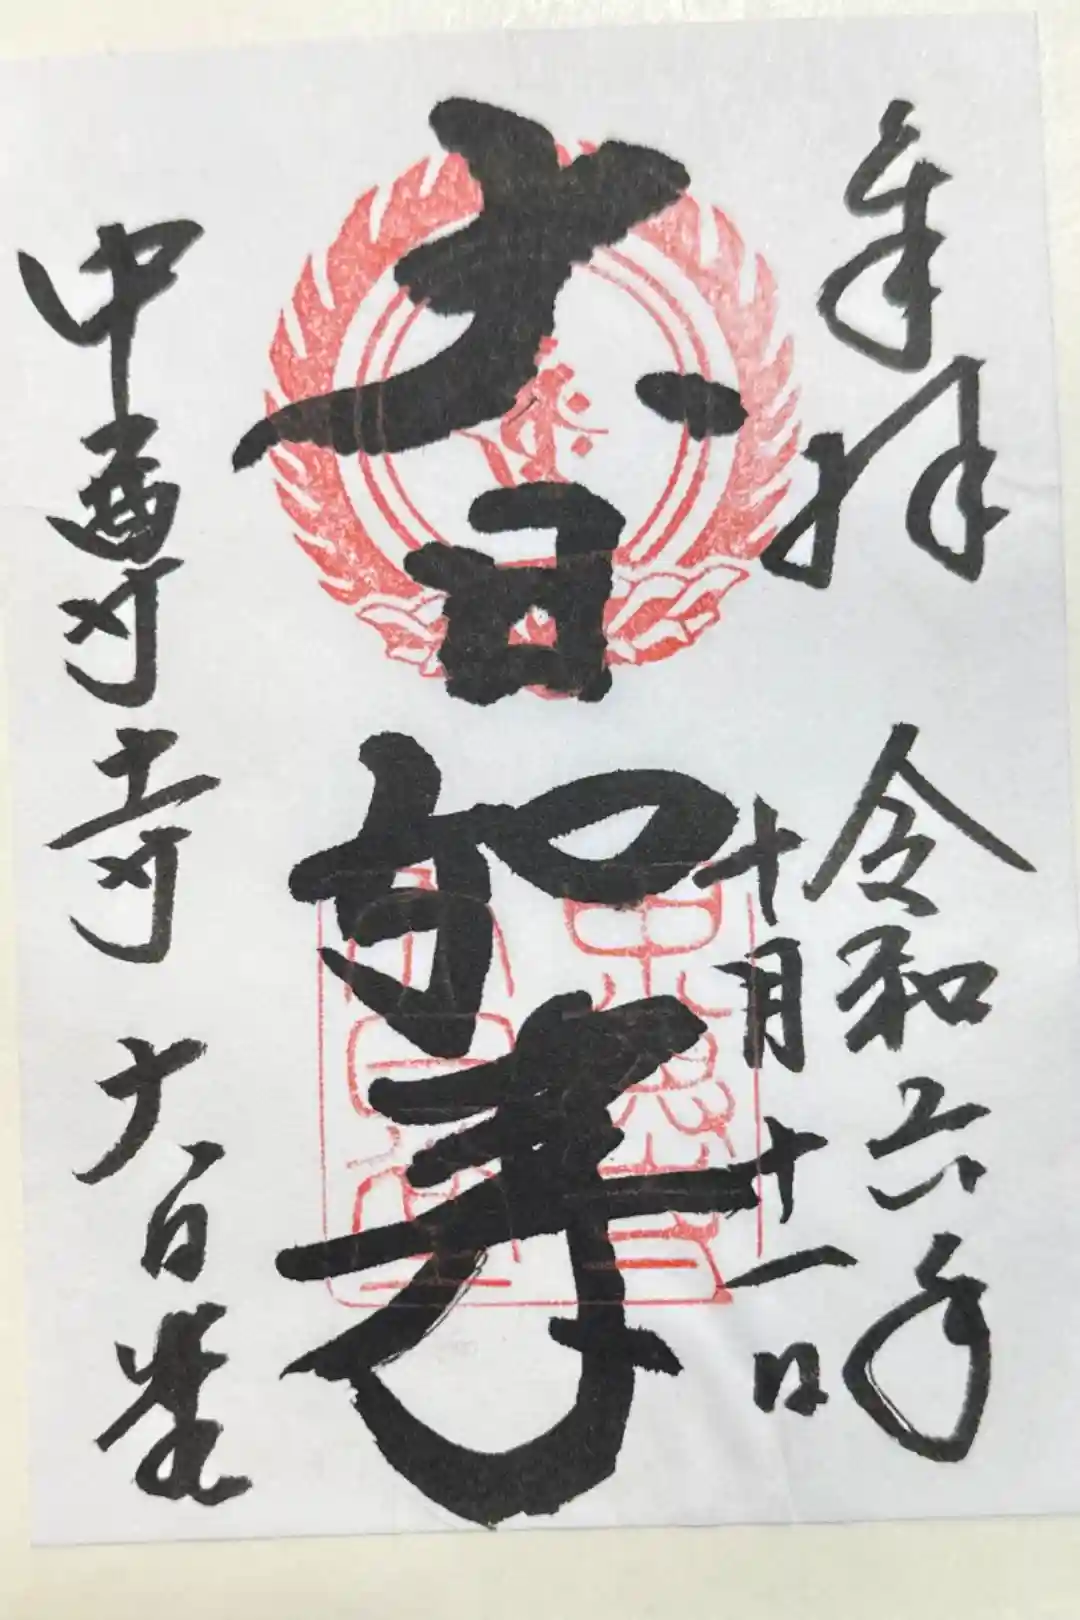 奉拝 令和六年
十月十一日
大日如来
中尊寺 大日堂